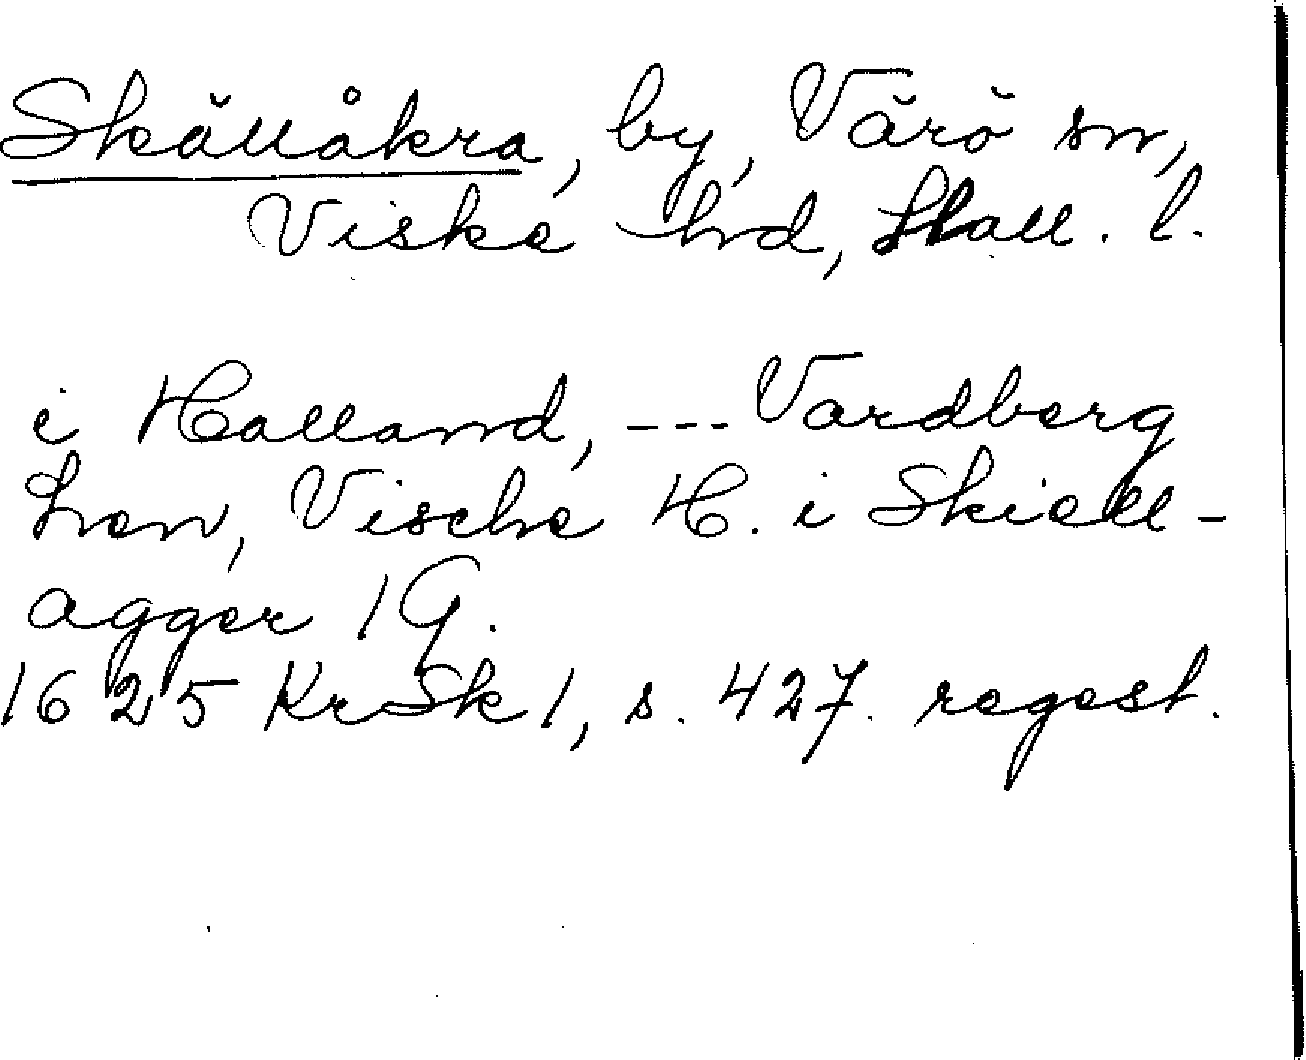 Skällåkra, by, Värö sn,
Viske hd, Hall. l.
i Halland, --- Vardberg
Len, Vische H. i Skiell-
agger 1 G.
1625 KrSk 1, s. 427. regest.